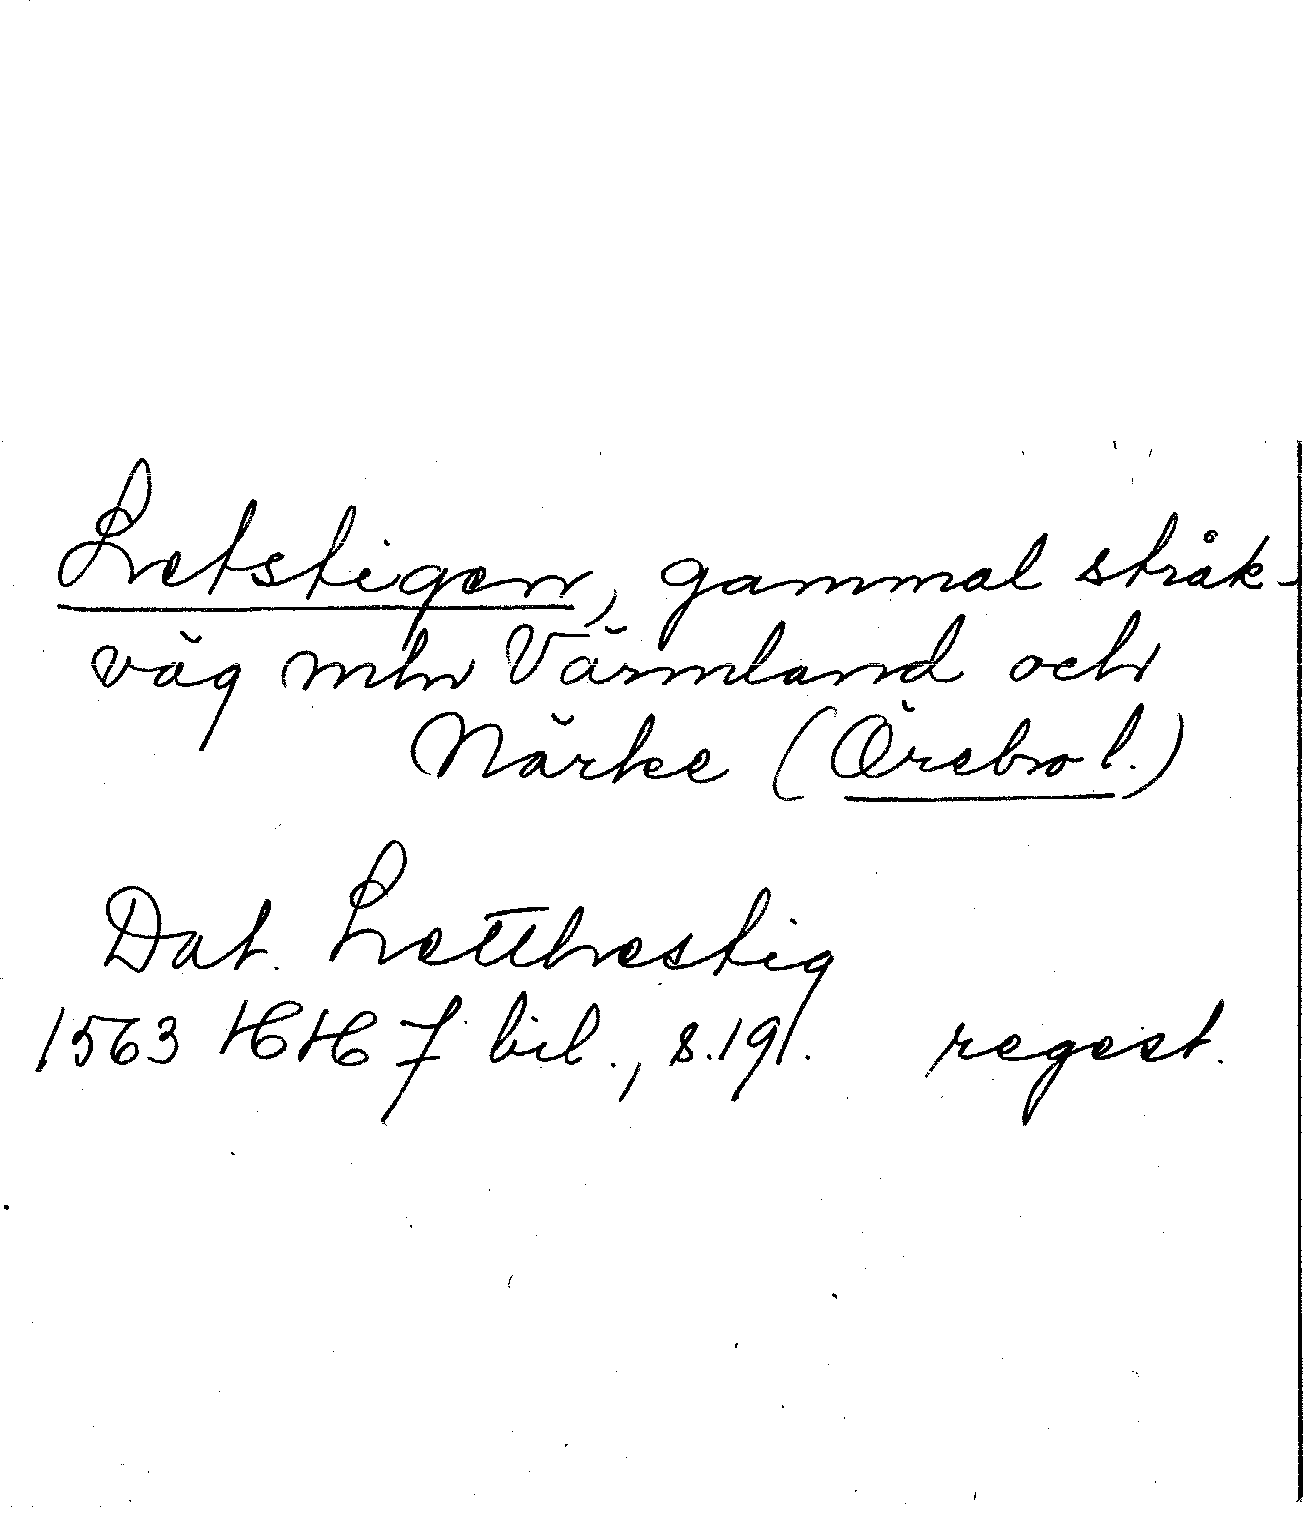 Letstigen, gammal stråk-
väg mln Värmland och
Närke (Örebro l.)
Dat. Letthestig
1563 HH 7 bil., s.191. regest.